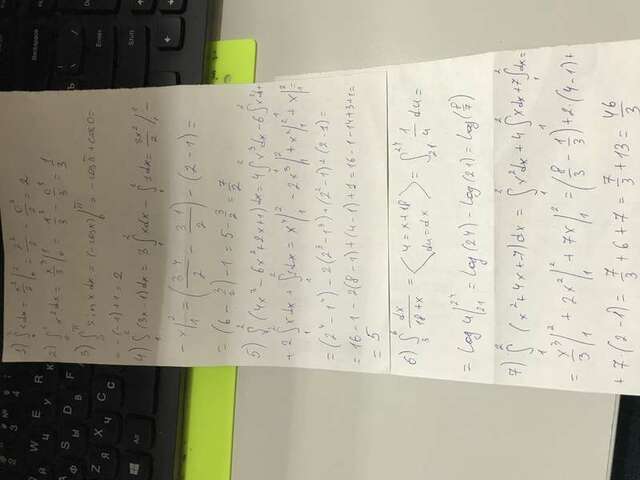 1) ∫₀² xdx = x²/2 |₀² = 2²/2 - 0²/2 = 2
2) ∫₀¹ x²dx = x³/3 |₀¹ = 1³/3 - 0³/3 = 1/3
3) ∫₀^π sin x dx = (-cos x) |₀^π = -cos π + cos 0 =
= -(-1) + 1 = 2
4) ∫₁² (3x-1)dx = 3 ∫₁² xdx - ∫₁² 1dx = 3x²/2 |₁² -
- x |₁² = (3·4/2 - 3·1/2) - (2-1) =
= (6 - 3/2) - 1 = 5 - 3/2 = 7/2
5) ∫₁² (4x³ - 6x² + 2x + 1)dx = 4 ∫₁² x³dx - 6 ∫₁² x²dx +
+ 2 ∫₁² xdx + ∫₁² 1dx = x⁴ |₁² - 2x³ |₁² + x² |₁² + x |₁² =
= (2⁴ - 1⁴) - 2(2³ - 1³) + (2² - 1²) + (2 - 1) =
= 16 - 1 - 2(8 - 1) + (4 - 1) + 1 = 16 - 1 - 14 + 3 + 1 =
= 5
6) ∫₃ dx/(18+x) = < u = x + 18 du = dx > = ∫₂₁ 1/u du =
= log u |₂₁ = log(24) - log(21) = log(8/7)
7) ∫₁² (x² + 4x + 7)dx = ∫₁² x²dx + 4 ∫₁² xdx + 7 ∫₁² dx =
= x³/3 |₁² + 2x² |₁² + 7x |₁² = (8/3 - 1/3) + 2·(4-1) +
+ 7·(2-1) = 7/3 + 6 + 7 = 7/3 + 13 = 46/3